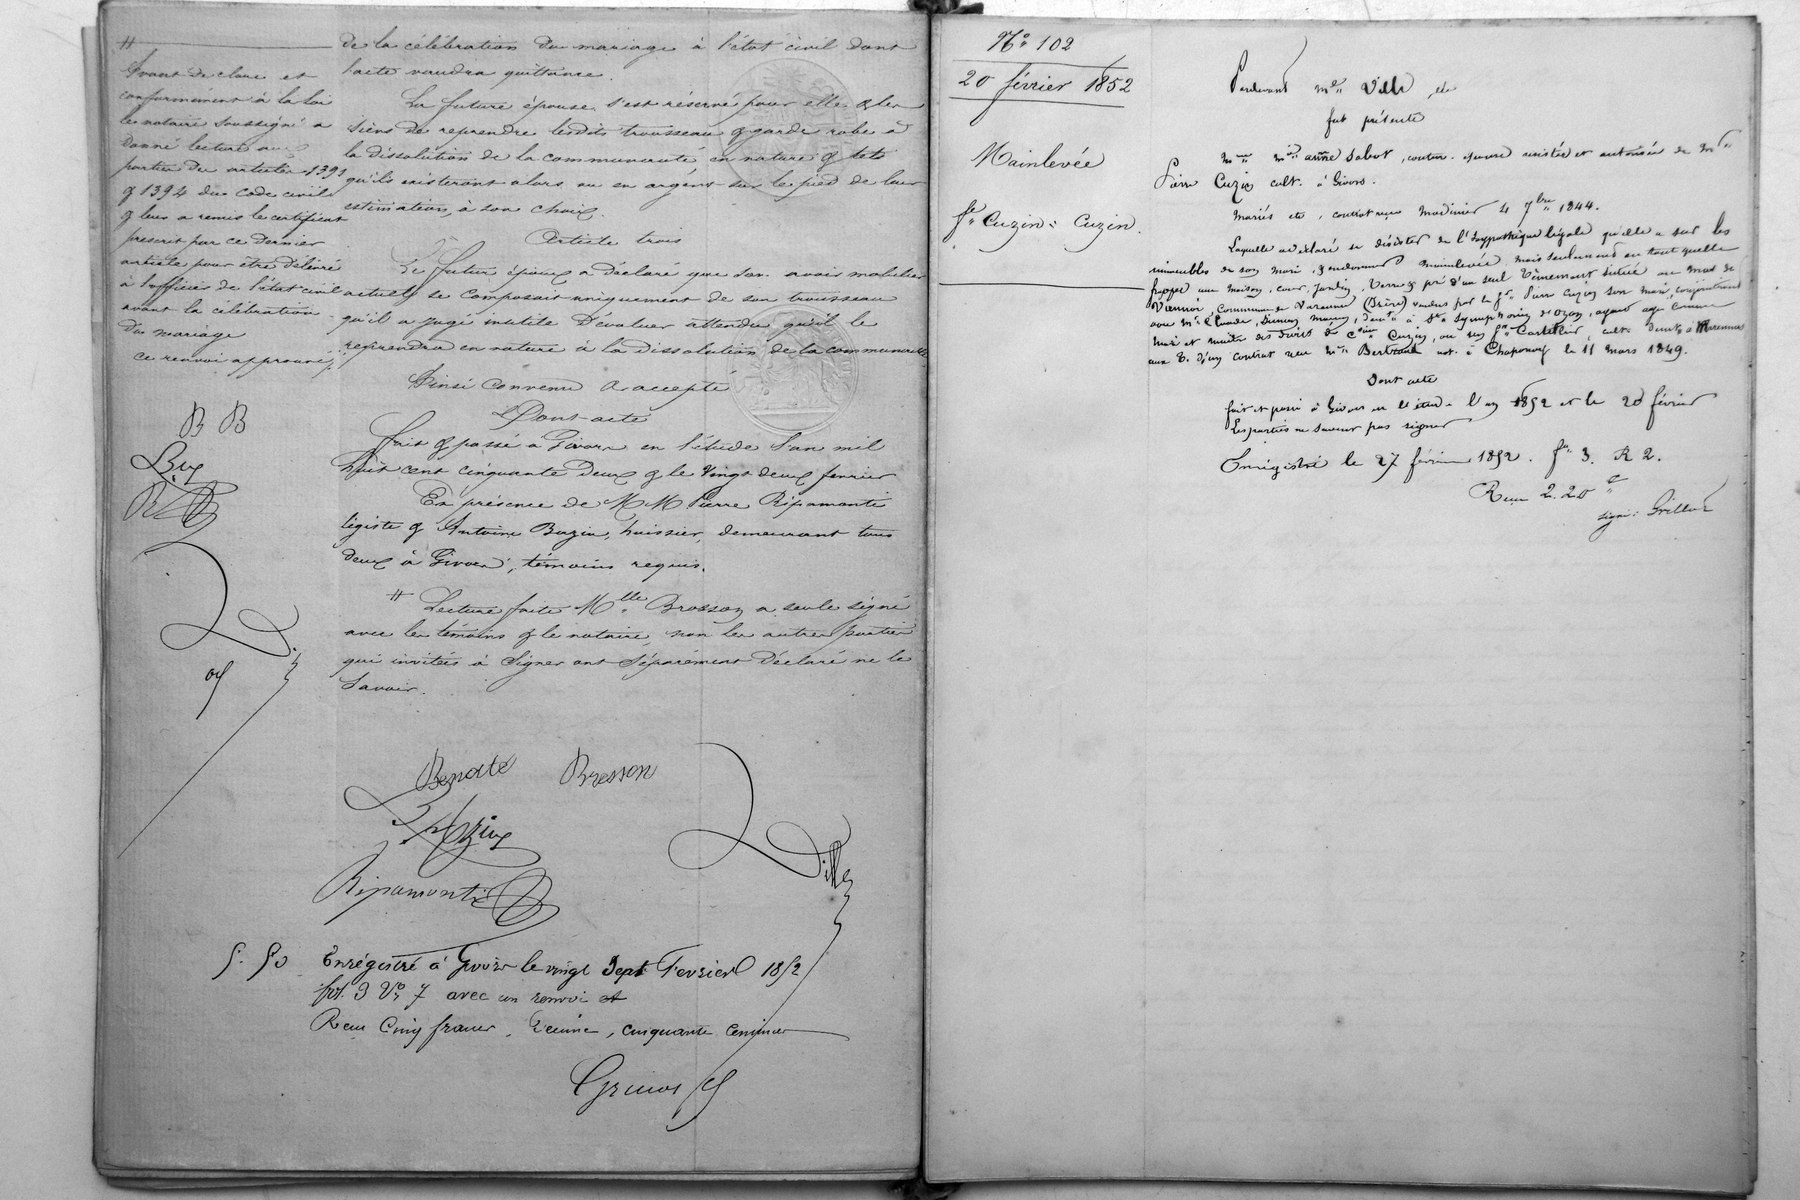 #
Avant de clore et
conformément à la loi
le notaire soussigné a
donné lecture aux
parties des articles 1391
& 1394 du code civil
& leur a remis le certificat
prescrit par ce dernier
article pour être délivré
à l'officier de l'état civil
avant la célébration
du mariage
ce renvoi approuvé
B B
de la célébration du mariage à l'état civil dont
l'acte vaudra quittance.
La future épouse s'est réservé pour elle & les
siens de reprendre lesdits trousseau & garde robe à
la dissolution de la communauté en nature & tels
qu'ils existeront alors ou en argent sur le pied de leur
estimation, à son choix.
Article trois
Le futur époux a déclaré que son avoir mobilier
actuel se composait uniquement de son trousseau
qu'il a jugé inutile d'évaluer attendu qu'il le
reprendra en nature à la dissolution de la communauté
Ainsi convenu & accepté
Dont acte
Fait & passé à Givors en l'étude l'an mil
huit cent cinquante deux & le vingt deux février
En présence de MM Pierre Ripamonti
légiste & Antoine Bazin, huissier, demeurant tous
deux à Givors, témoins requis.
# Lecture faite Mlle Bresson a seule signé
avec les témoins & le notaire, non les autres parties
qui invitées à signer ont séparément déclaré ne le
savoir.
Benoite Bresson
Ripamonti
Ville
5. 50
Enrégistré à Givors le vingt sept Fevrier 1852
fol. 3 Vo 7 avec un renvoi
Reçu Cinq francs, Décime, cinquante centimes
No 102
20 février 1852
Mainlevée
fe Cuzin : Cuzin.
Pardevant Me Ville, etc
fut présente
Mme Anne Sabot, coutur. épouse assistée et autorisée de Mr
Pierre Cuzin cult. à Givors.
Mariés etc, contrat reçu Modinier 4 7bre 1844.
Laquelle a déclaré se désister de l'hypothèque légale qu'elle a sur les
immeubles de son mari, & en donner mainlevée mais seulement en tant qu'elle
frappe une maison, cour, jardin, terre & pré d'un seul tènement situé au mas de
Commune de (Isère) vendus par le sr Pierre Cuzin son mari, conjointement
à St Symphorien d'Ozon, ayant agi comme
et des droits de Cuzin, au sr cult. demt à Marennes
aux t. d'un contrat reçu Me Bertrand not. à Chaponnay le 11 mars 1849.
Dont acte
fait et passé à Givors en l'étude l'an 1852 et le 20 février
Les parties ne savent pas signer
Enrégistré le 27 février 1852. fo 3. R 2.
Reçu 2.20 c
signé : Grillot